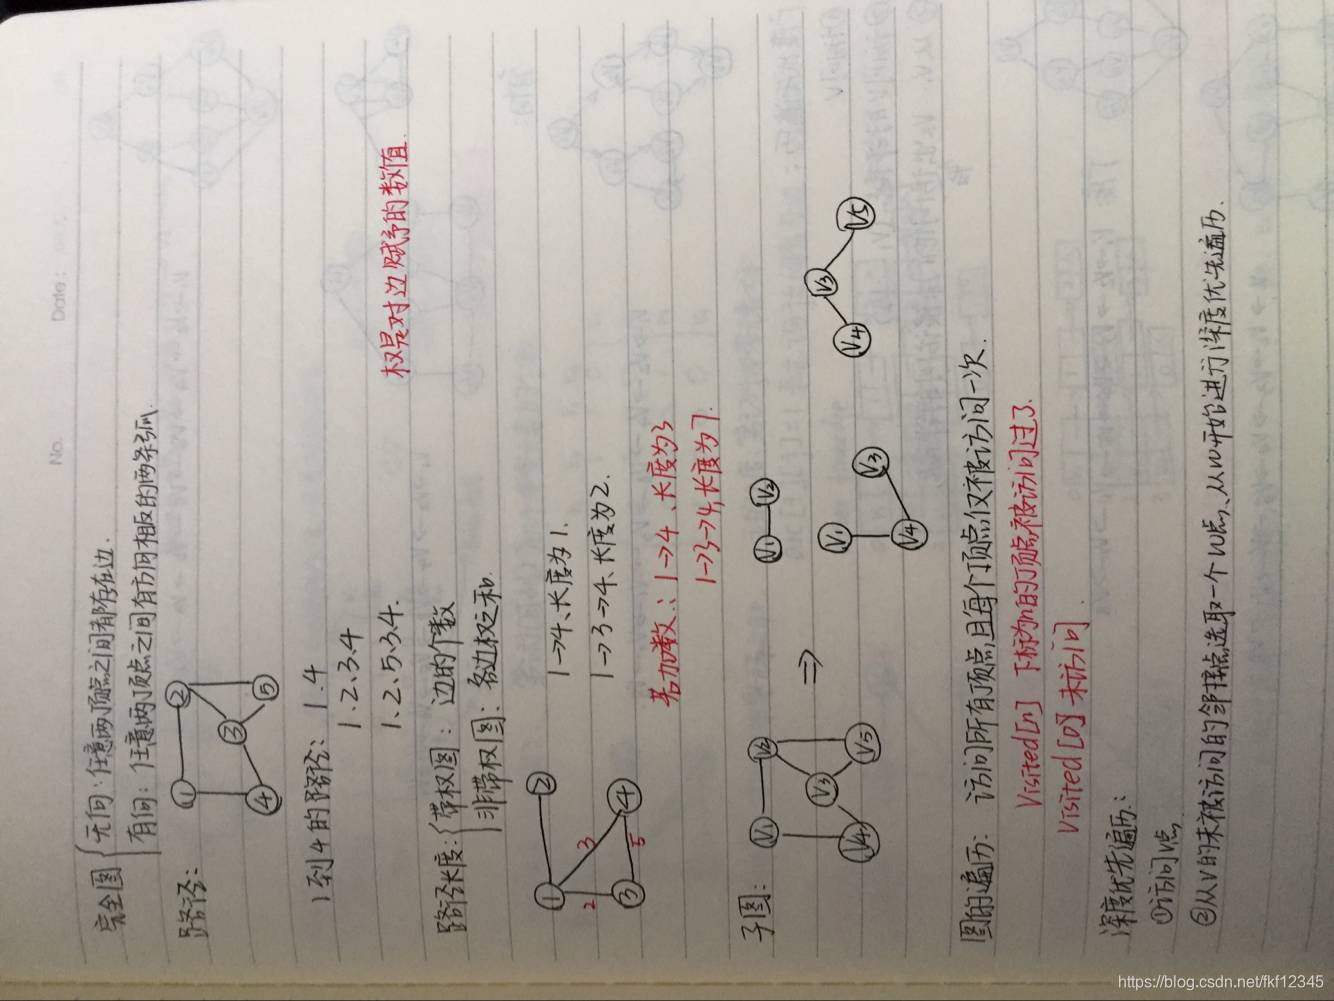 No.
Date:
完全图 无向:任意两顶点之间都存在边.
有向:任意两顶点之间有方向相反的两条弧.
路径:
1 2
3
4 5
1到4的路径: 1.4
1.2.3.4
1.2.5.3.4.
权是对边赋予的数值.
路径长度: 带权图: 边的个数
非带权图: 各边权之和.
1 2
3 4
2 3 5
1→4、长度为1.
1→3→4、长度为2.
若加数: 1→4、长度为3
1→3→4,长度为7.
子图:
V1 V2
V3
V4 V5
⇒
V1 V2
V1
V4 V3
V3
V4 V5
图的遍历: 访问所有顶点且每个顶点仅被访问一次.
Visited[n] 下标为n的顶点被访问过了.
Visited[0] 未访问.
深度优先遍历:
①访问v点
②从V的未被访问的邻接点选取一个w点、从w开始进行深度优先遍历.
https://blog.csdn.net/fkf12345